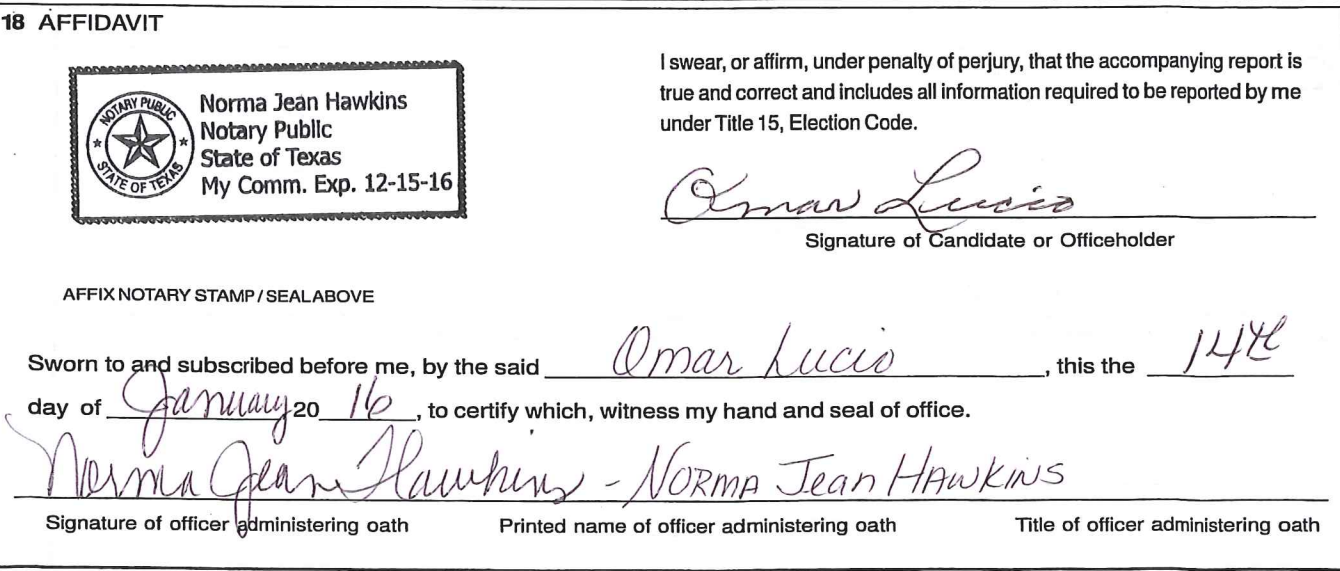 18 AFFIDAVIT
NOTARY PUBLIC
STATE OF TEXAS
Norma Jean Hawkins
Notary Public
State of Texas
My Comm. Exp. 12-15-16
I swear, or affirm, under penalty of perjury, that the accompanying report is
true and correct and includes all information required to be reported by me
under Title 15, Election Code.
Omar Lucio
Signature of Candidate or Officeholder
AFFIX NOTARY STAMP / SEALABOVE
Sworn to and subscribed before me, by the said Omar Lucio, this the 14th
day of January 20 16, to certify which, witness my hand and seal of office.
Norma Jean Hawkins - NORMA Jean HAWKINS
Signature of officer administering oath Printed name of officer administering oath Title of officer administering oath